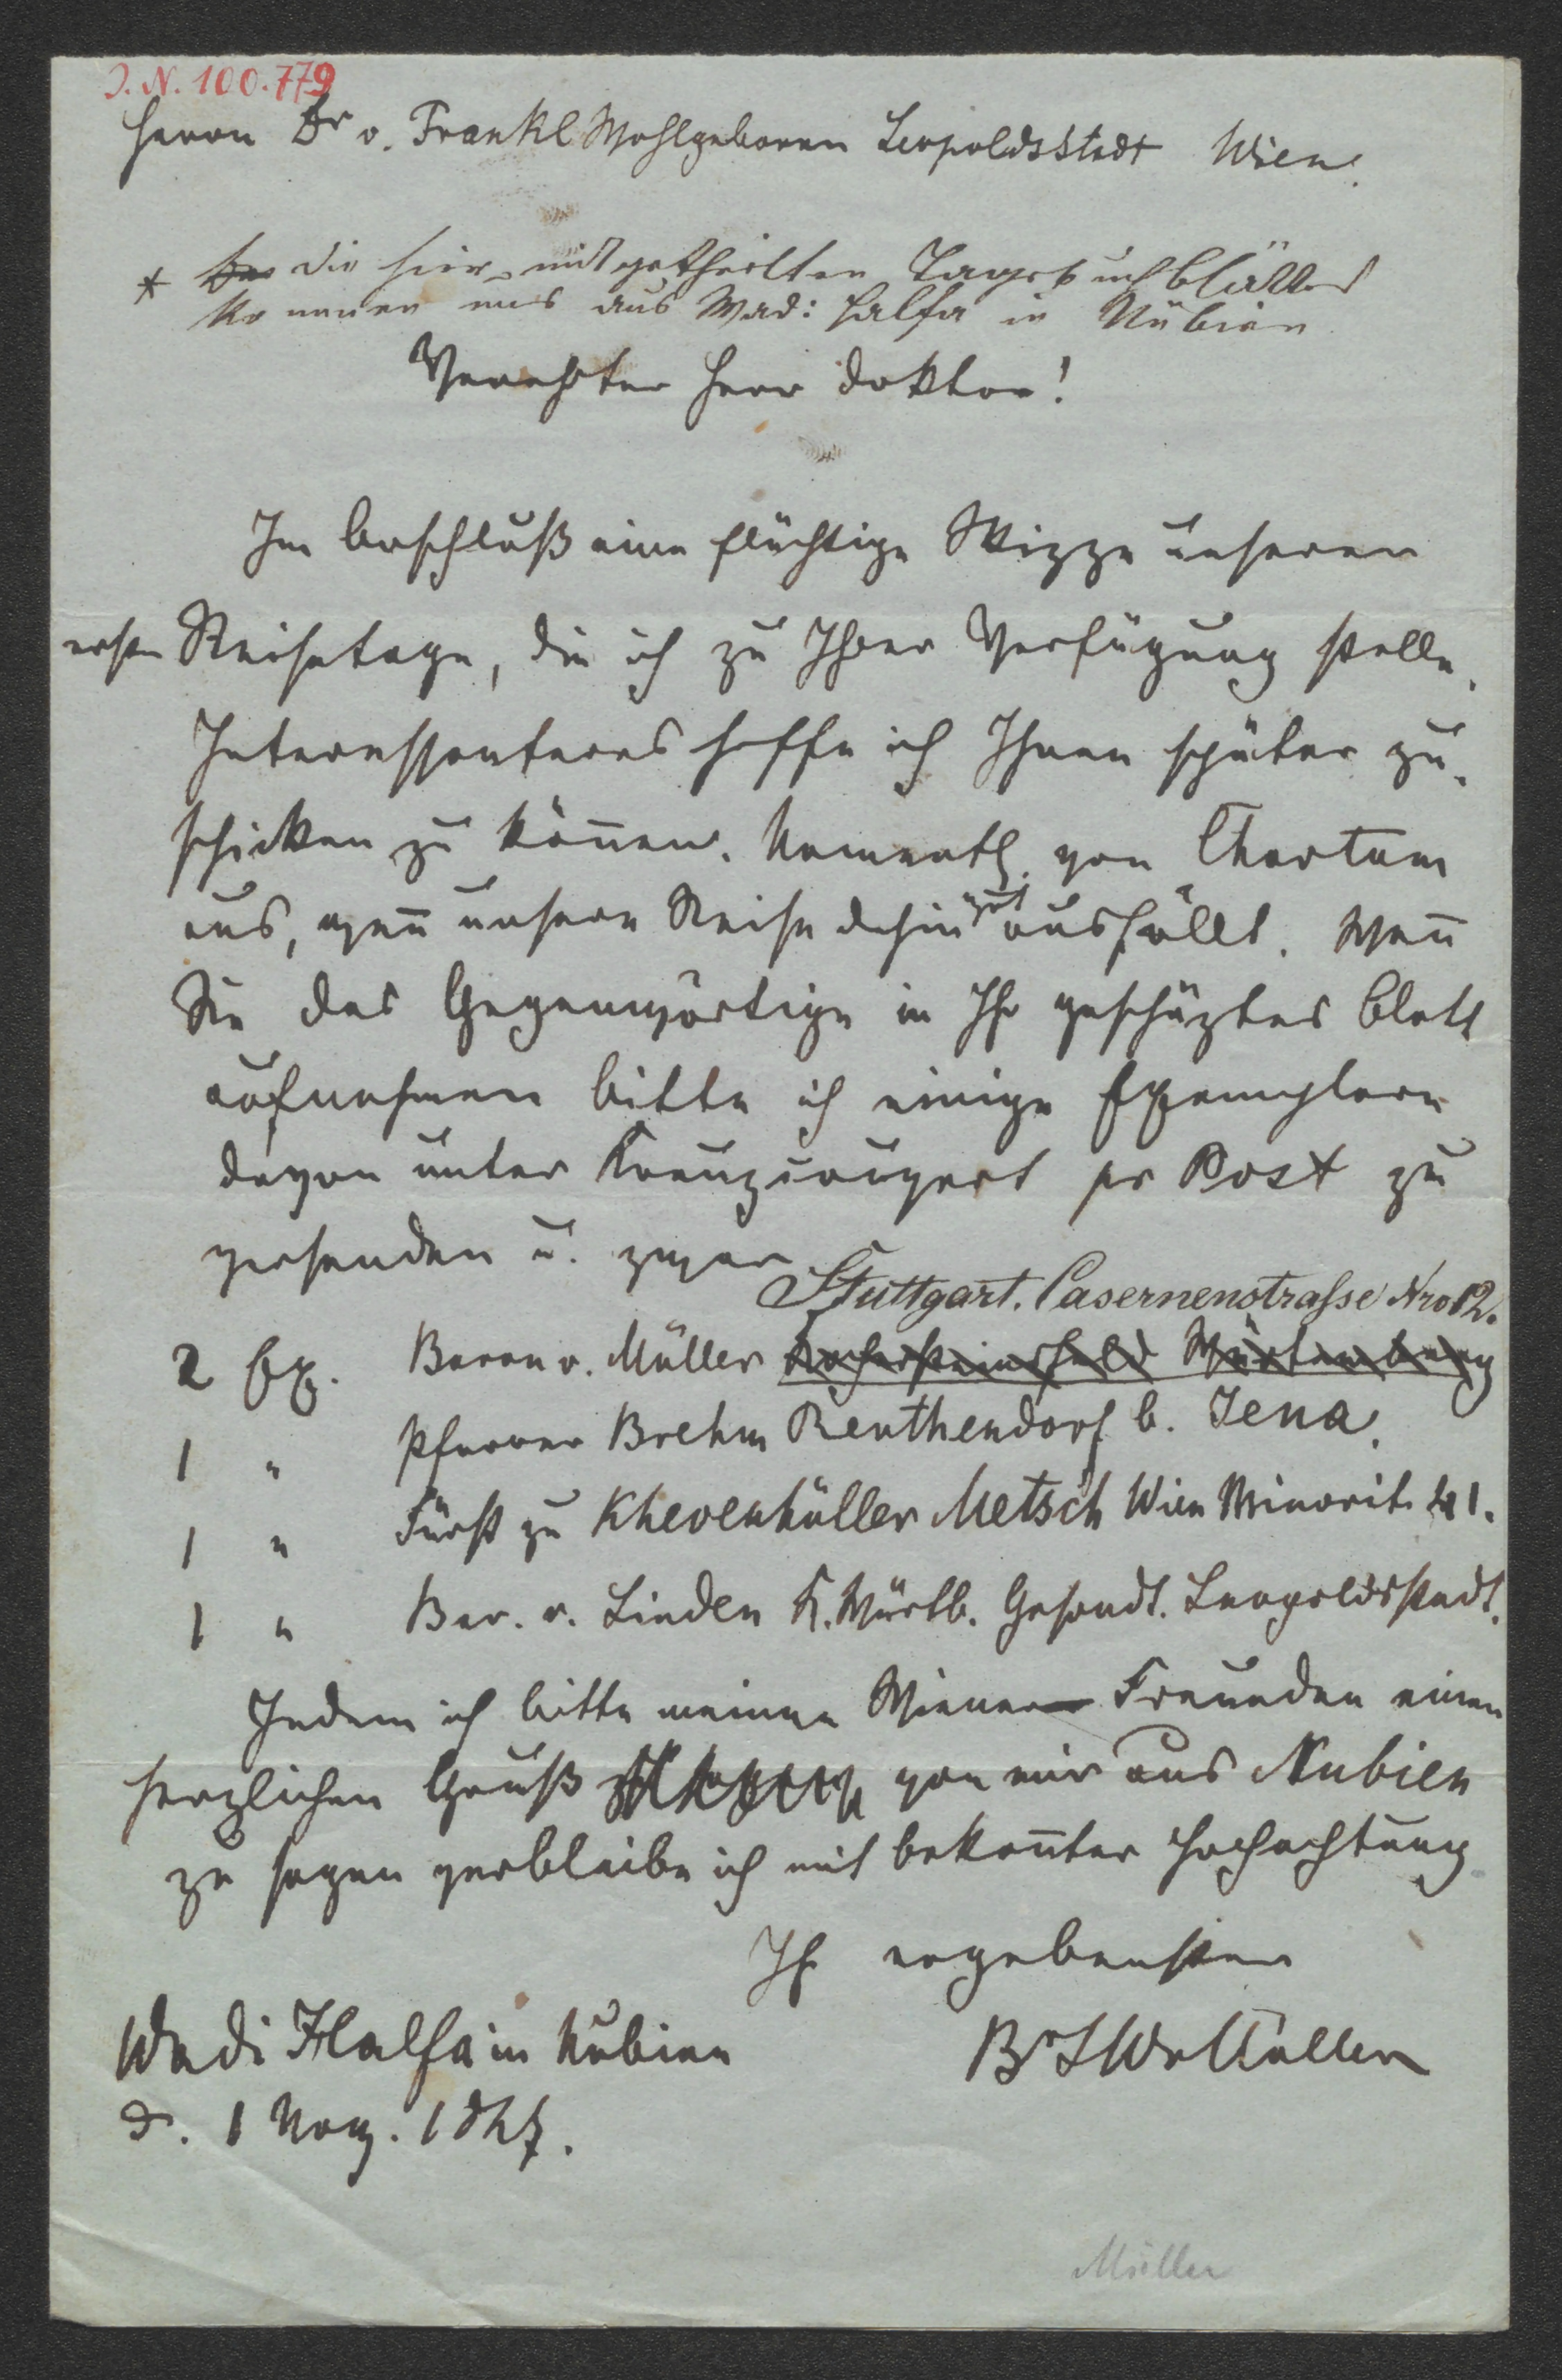 J. N. 100.779
Herrn Dr v. Frankl Wohlgeboren Leopoldsstadt Wien.
* Die hier mitgetheilten Tagebuchblätter
kommen uns aus Wad: Halfa in Nubien
Verehrter Herr Doktor!
Im Anschluß eine flüchtige Skizze unserer
ersten Reisetage, die ich zu Ihrer Verfügung stelle.
Interessanteres hoffe ich Ihnen später zu-
schicken zu können. Namentl. von Chartum
aus, wen̄ unsere Reise dahin gut ausfällt. Wen̄
Sie das Gegenwärtige in Ihr geschäztes Blatt
aufnehmen bitte ich einige Exemplare
davon unter Kreuzcouvert pr Post zu
versenden u. zwar
Stuttgart. Casernenstrasse Nro 12.
2 Ex. Baron v. Müller Kochersteinsfeld Würtemberg
1 " Pfarrer Brehm Renthendorf b. Jena.
1 " Fürst zu Khevenhüller Metsch Wien Minorit. 41.
1 " Bar. v. Linden K. Würtb. Gesandt. Leopoldsstadt.
Indem ich bitte meinen Wiener Freunden einen
herzlichen Gruß von mir aus Nubien
zu sagen verbleibe ich mit bekan̄ter Hochachtung
Ihr ergebenster
Wadi Halfa in Nubien
d. 1 Nov. 1847.
Br JWvMüller
Müller